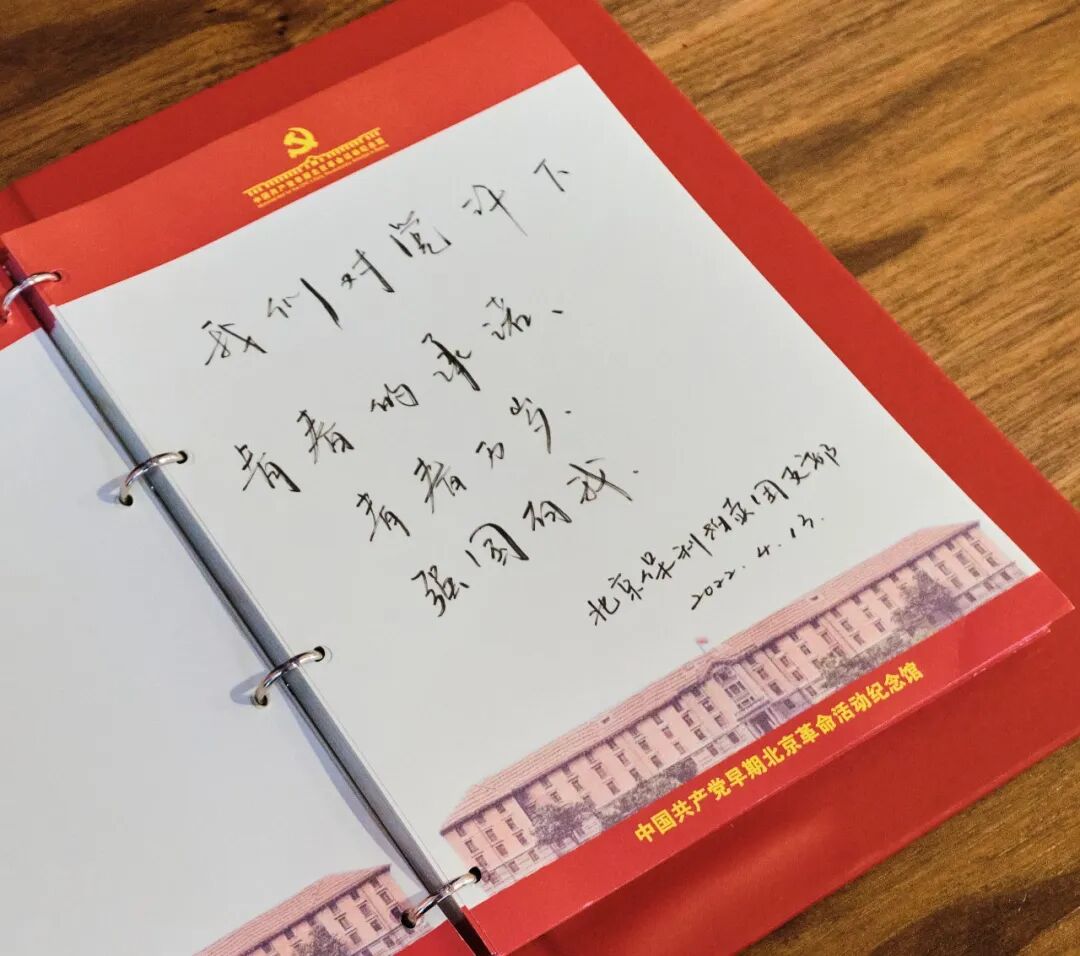 中国共产党早期北京革命活动纪念馆
我们对党许下
青春的承诺、
青春万岁.
强国有我.
北京保利物业团支部
2022.4.13.
中国共产党早期北京革命活动纪念馆